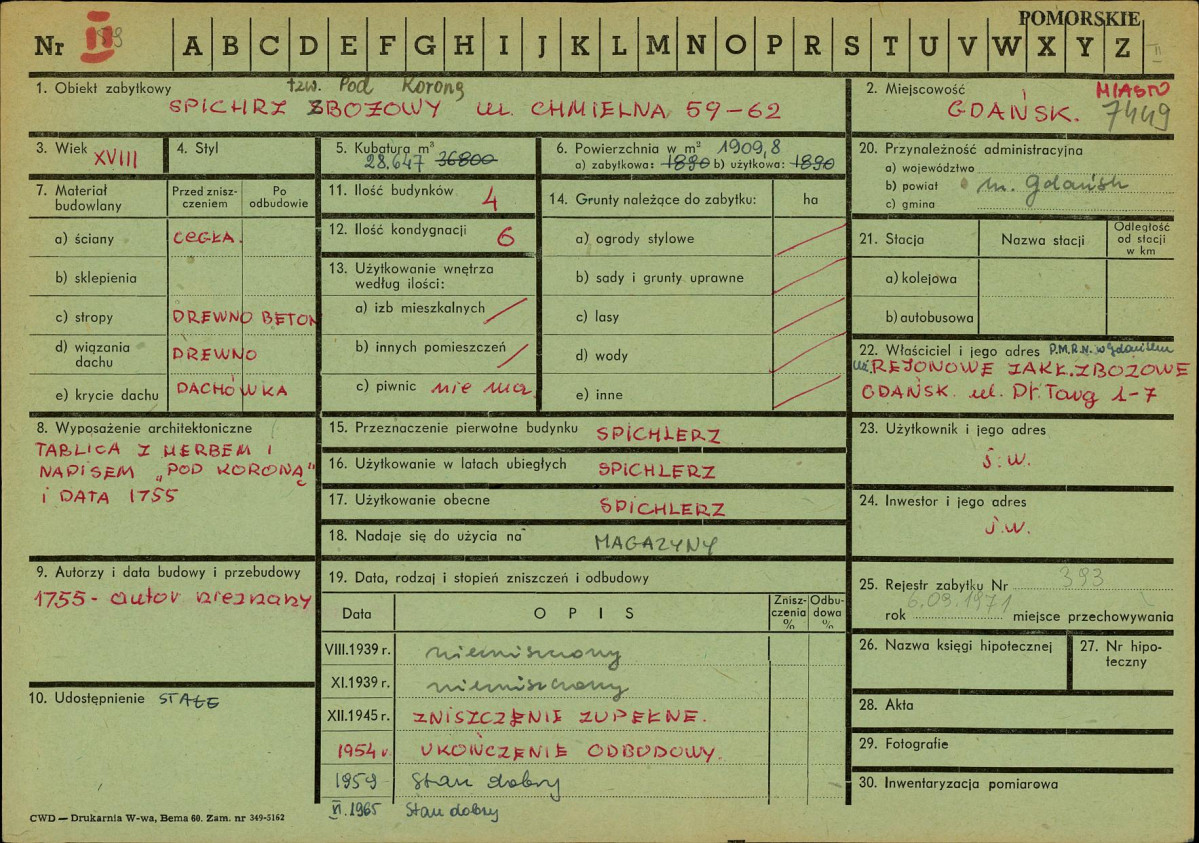 POMORSKIE
Nr II A B C D E F G H I J K L M N O P R S T U V W X Y Z
1. Obiekt zabytkowy tzw. Pod Koroną
SPICHRZ ZBOŻOWY ul. CHMIELNA 59-62
2. Miejscowość MIASTO
GDAŃSK. 7449
3. Wiek XVIII
4. Styl
5. Kubatura m³
28.647 36800
6. Powierzchnia w m² 1909,8
a) zabytkowa: 1890 b) użytkowa: 1890
7. Materiał budowlany
Przed zniszczeniem
Po odbudowie
a) ściany CEGŁA.
b) sklepienia
c) stropy DREWNO BETON
d) wiązania dachu DREWNO
e) krycie dachu DACHÓWKA
8. Wyposażenie architektoniczne
TABLICA Z HERBEM I
NAPISEM „POD KORONĄ”
i DATA 1755
9. Autorzy i data budowy i przebudowy
1755 - autor nieznany
10. Udostępnienie STAŁE
11. Ilość budynków 4
12. Ilość kondygnacji 6
13. Użytkowanie wnętrza
według ilości:
a) izb mieszkalnych
b) innych pomieszczeń
c) piwnic nie ma
14. Grunty należące do zabytku: ha
a) ogrody stylowe
b) sady i grunty uprawne
c) lasy
d) wody
e) inne
15. Przeznaczenie pierwotne budynku SPICHLERZ
16. Użytkowanie w latach ubiegłych SPICHLERZ
17. Użytkowanie obecne SPICHLERZ
18. Nadaje się do użycia na MAGAZYNY
19. Data, rodzaj i stopień zniszczeń i odbudowy
Data OPIS Zniszczenia % Odbudowa %
VIII.1939 r. niezniszczony
XI.1939 r. niezniszczony
XII.1945 r. ZNISZCZENIE ZUPEŁNE.
1954 r. UKOŃCZENIE ODBUDOWY.
1959 Stan dobry
VI.1965 Stan dobry
20. Przynależność administracyjna
a) województwo
b) powiat m. Gdańsk
c) gmina
21. Stacja Nazwa stacji Odległość od stacji w km
a) kolejowa
b) autobusowa
22. Właściciel i jego adres P.M.R.N. w Gdańsku
REJONOWE ZAKŁ. ZBOŻOWE
GDAŃSK. ul. 1-7
23. Użytkownik i jego adres
j.w.
24. Inwestor i jego adres
j.w.
25. Rejestr zabytku Nr 393
rok 6.09.1971 miejsce przechowywania
26. Nazwa księgi hipotecznej
27. Nr hipoteczny
28. Akta
29. Fotografie
30. Inwentaryzacja pomiarowa
CWD — Drukarnia W-wa, Bema 60. Zam. nr 349-5162